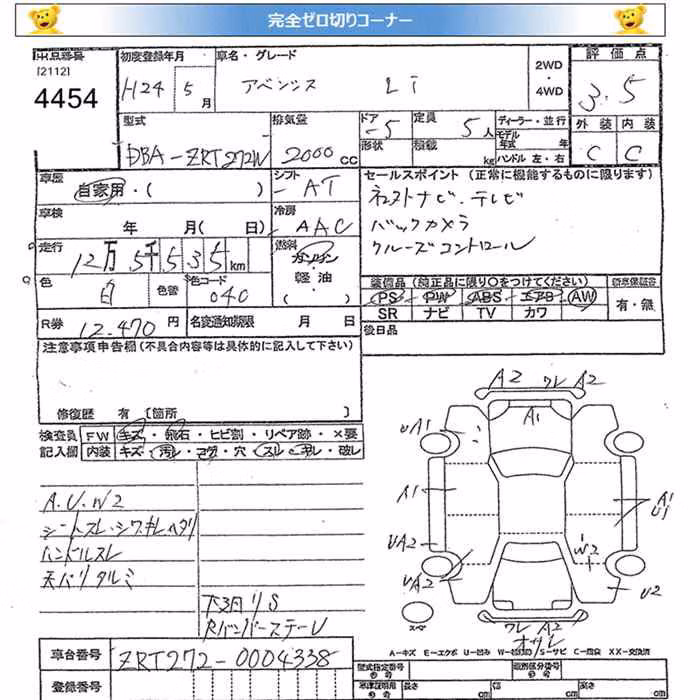 完全ゼロ切りコーナー
出品番号 初度登録年月 車名・グレード 2WD ・ 4WD 評価点
[2112]
4454 H24 5月 アベンシス Li 3.5
型式 排気量 ドア 定員 ディーラー・並行 外装 内装
DBA-ZRT272W 2000cc -5 5人 モデル年式 年 C C
形状 積載 kg ハンドル 左・右
車歴 シフト セールスポイント (正常に機能するものに限ります)
自家用・( ) AT ナビ.テレビ
車検 年 月( 日) 冷房 AAC バックカメラ
走行 12万5千535km 燃料 ガソリン・軽油 クルーズコントロール
色 白 色替 色コード 040 装備品(純正品に限り○をつけてください) 新車保証書
PS PW ABS エアB AW 有・無
SR ナビ TV カワ
R券 12.470円 名変通知期限 月 日 後日品
注意事項申告欄(不具合内容等は具体的に記入して下さい)
修復歴 有 [箇所 ]
検査員 FW キズ・飛石・ヒビ割・リペア跡・×要
記入欄 内装 キズ・汚レ・コゲ・穴・スレ・キレ・破レ
A2 ワレ A2
UA1 A1
A1 A1 U1
UA2 W2
UA2 U2
A.U.W2
シートスレ・シワ・キレ・ヘタリ
ハンドルスレ
天バリタルミ
下廻りS
Rバンパーステー
スペア ワレ A2
A-キズ E-エクボ U-凹み W-補修跡 S-サビ C-腐食 XX-交換済
車台番号 ZRT272-0004338 型式指定番号 類別区分番号
登録番号 長さ cm 幅 cm 高さ cm